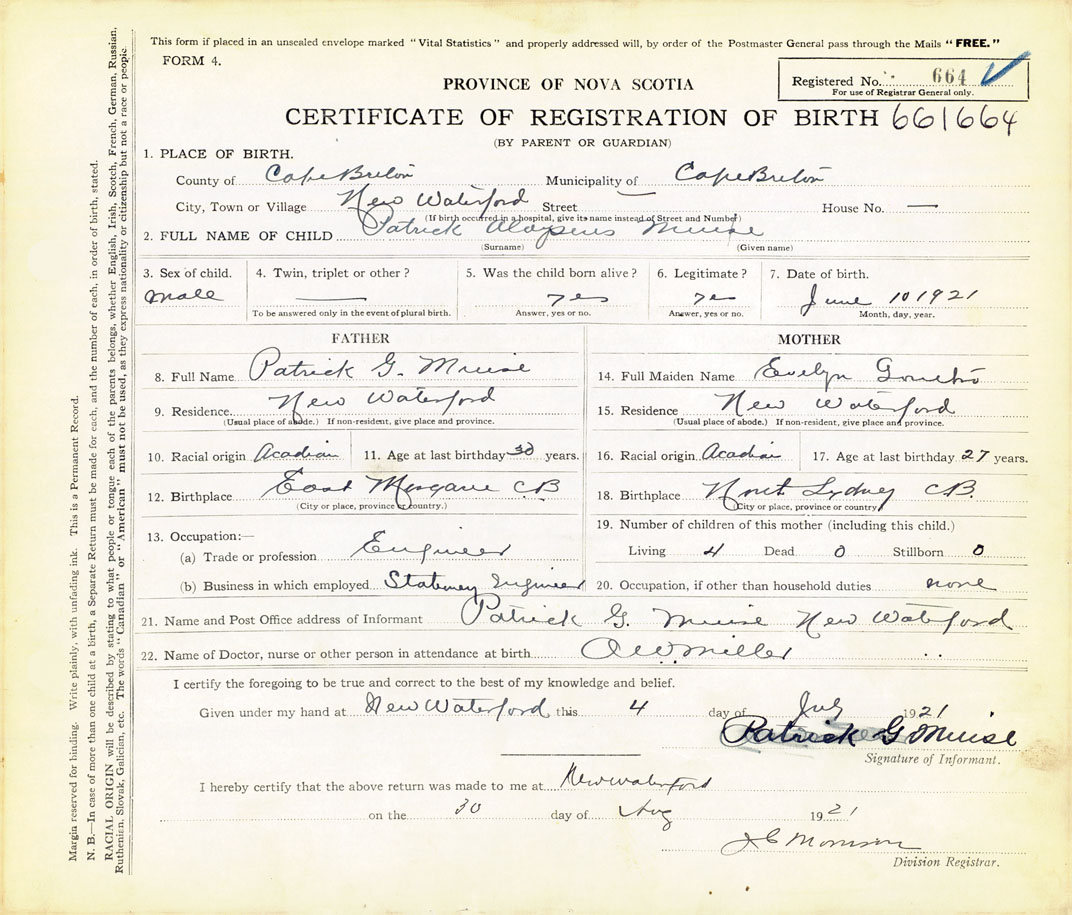 This form if placed in an unsealed envelope marked "Vital Statistics" and properly addressed will, by order of the Postmaster General pass through the Mails "FREE."
FORM 4.
Registered No. 664
For use of Registrar General only.
PROVINCE OF NOVA SCOTIA
CERTIFICATE OF REGISTRATION OF BIRTH 661664
(BY PARENT OR GUARDIAN)
1. PLACE OF BIRTH.
County of Cape Breton Municipality of Cape Breton
City, Town or Village New Waterford Street — House No. —
(If birth occurred in a hospital, give its name instead of Street and Number)
2. FULL NAME OF CHILD Patrick Aloysius Muise
(Surname) (Given name)
3. Sex of child. 4. Twin, triplet or other? 5. Was the child born alive? 6. Legitimate? 7. Date of birth.
male — yes yes June 10 1921
To be answered only in the event of plural birth. Answer, yes or no. Answer, yes or no. Month, day, year.
FATHER
8. Full Name Patrick G. Muise
9. Residence. New Waterford
(Usual place of abode.) If non-resident, give place and province.
10. Racial origin Acadian 11. Age at last birthday 30 years.
12. Birthplace East Margaree C B
(City or place, province or country.)
13. Occupation:—
(a) Trade or profession Engineer
(b) Business in which employed Engineer
MOTHER
14. Full Maiden Name Evelyn
15. Residence New Waterford
(Usual place of abode.) If non-resident, give place and province.
16. Racial origin Acadian 17. Age at last birthday 27 years.
18. Birthplace North Sydney CB.
(City or place, province or country)
19. Number of children of this mother (including this child.)
Living 4 Dead 0 Stillborn 0
20. Occupation, if other than household duties none
21. Name and Post Office address of Informant Patrick G. Muise New Waterford
22. Name of Doctor, nurse or other person in attendance at birth Miller
I certify the foregoing to be true and correct to the best of my knowledge and belief.
Given under my hand at New Waterford this 4 day of July 1921
Patrick G Muise
Signature of Informant.
I hereby certify that the above return was made to me at New Waterford
on the 30 day of Aug 1921
J C Morrison
Division Registrar.
Margin reserved for binding. Write plainly, with unfading ink. This is a Permanent Record.
N. B.—In case of more than one child at a birth, a Separate Return must be made for each, and the number of each, in order of birth, stated.
RACIAL ORIGIN will be described by stating to what people or tongue each of the parents belongs, whether English, Irish, Scotch, French, German, Russian,
Ruthenian, Slovak, Galician, etc. The words "Canadian" or "American" must not be used, as they express nationality or citizenship but not a race or people.